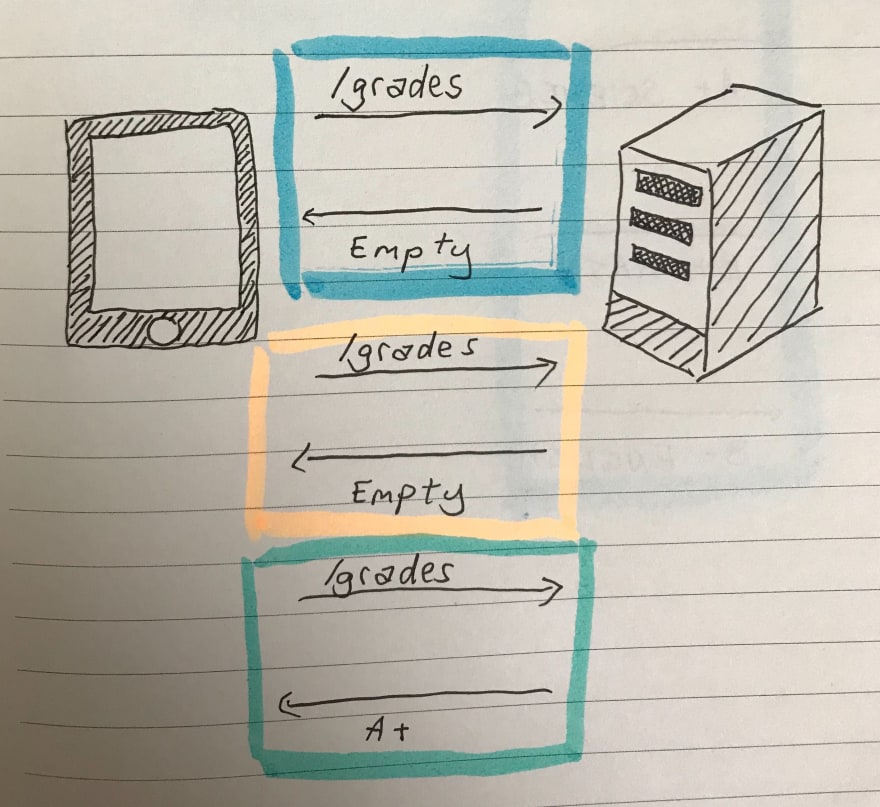 /grades
Empty
/grades
Empty
/grades
A+